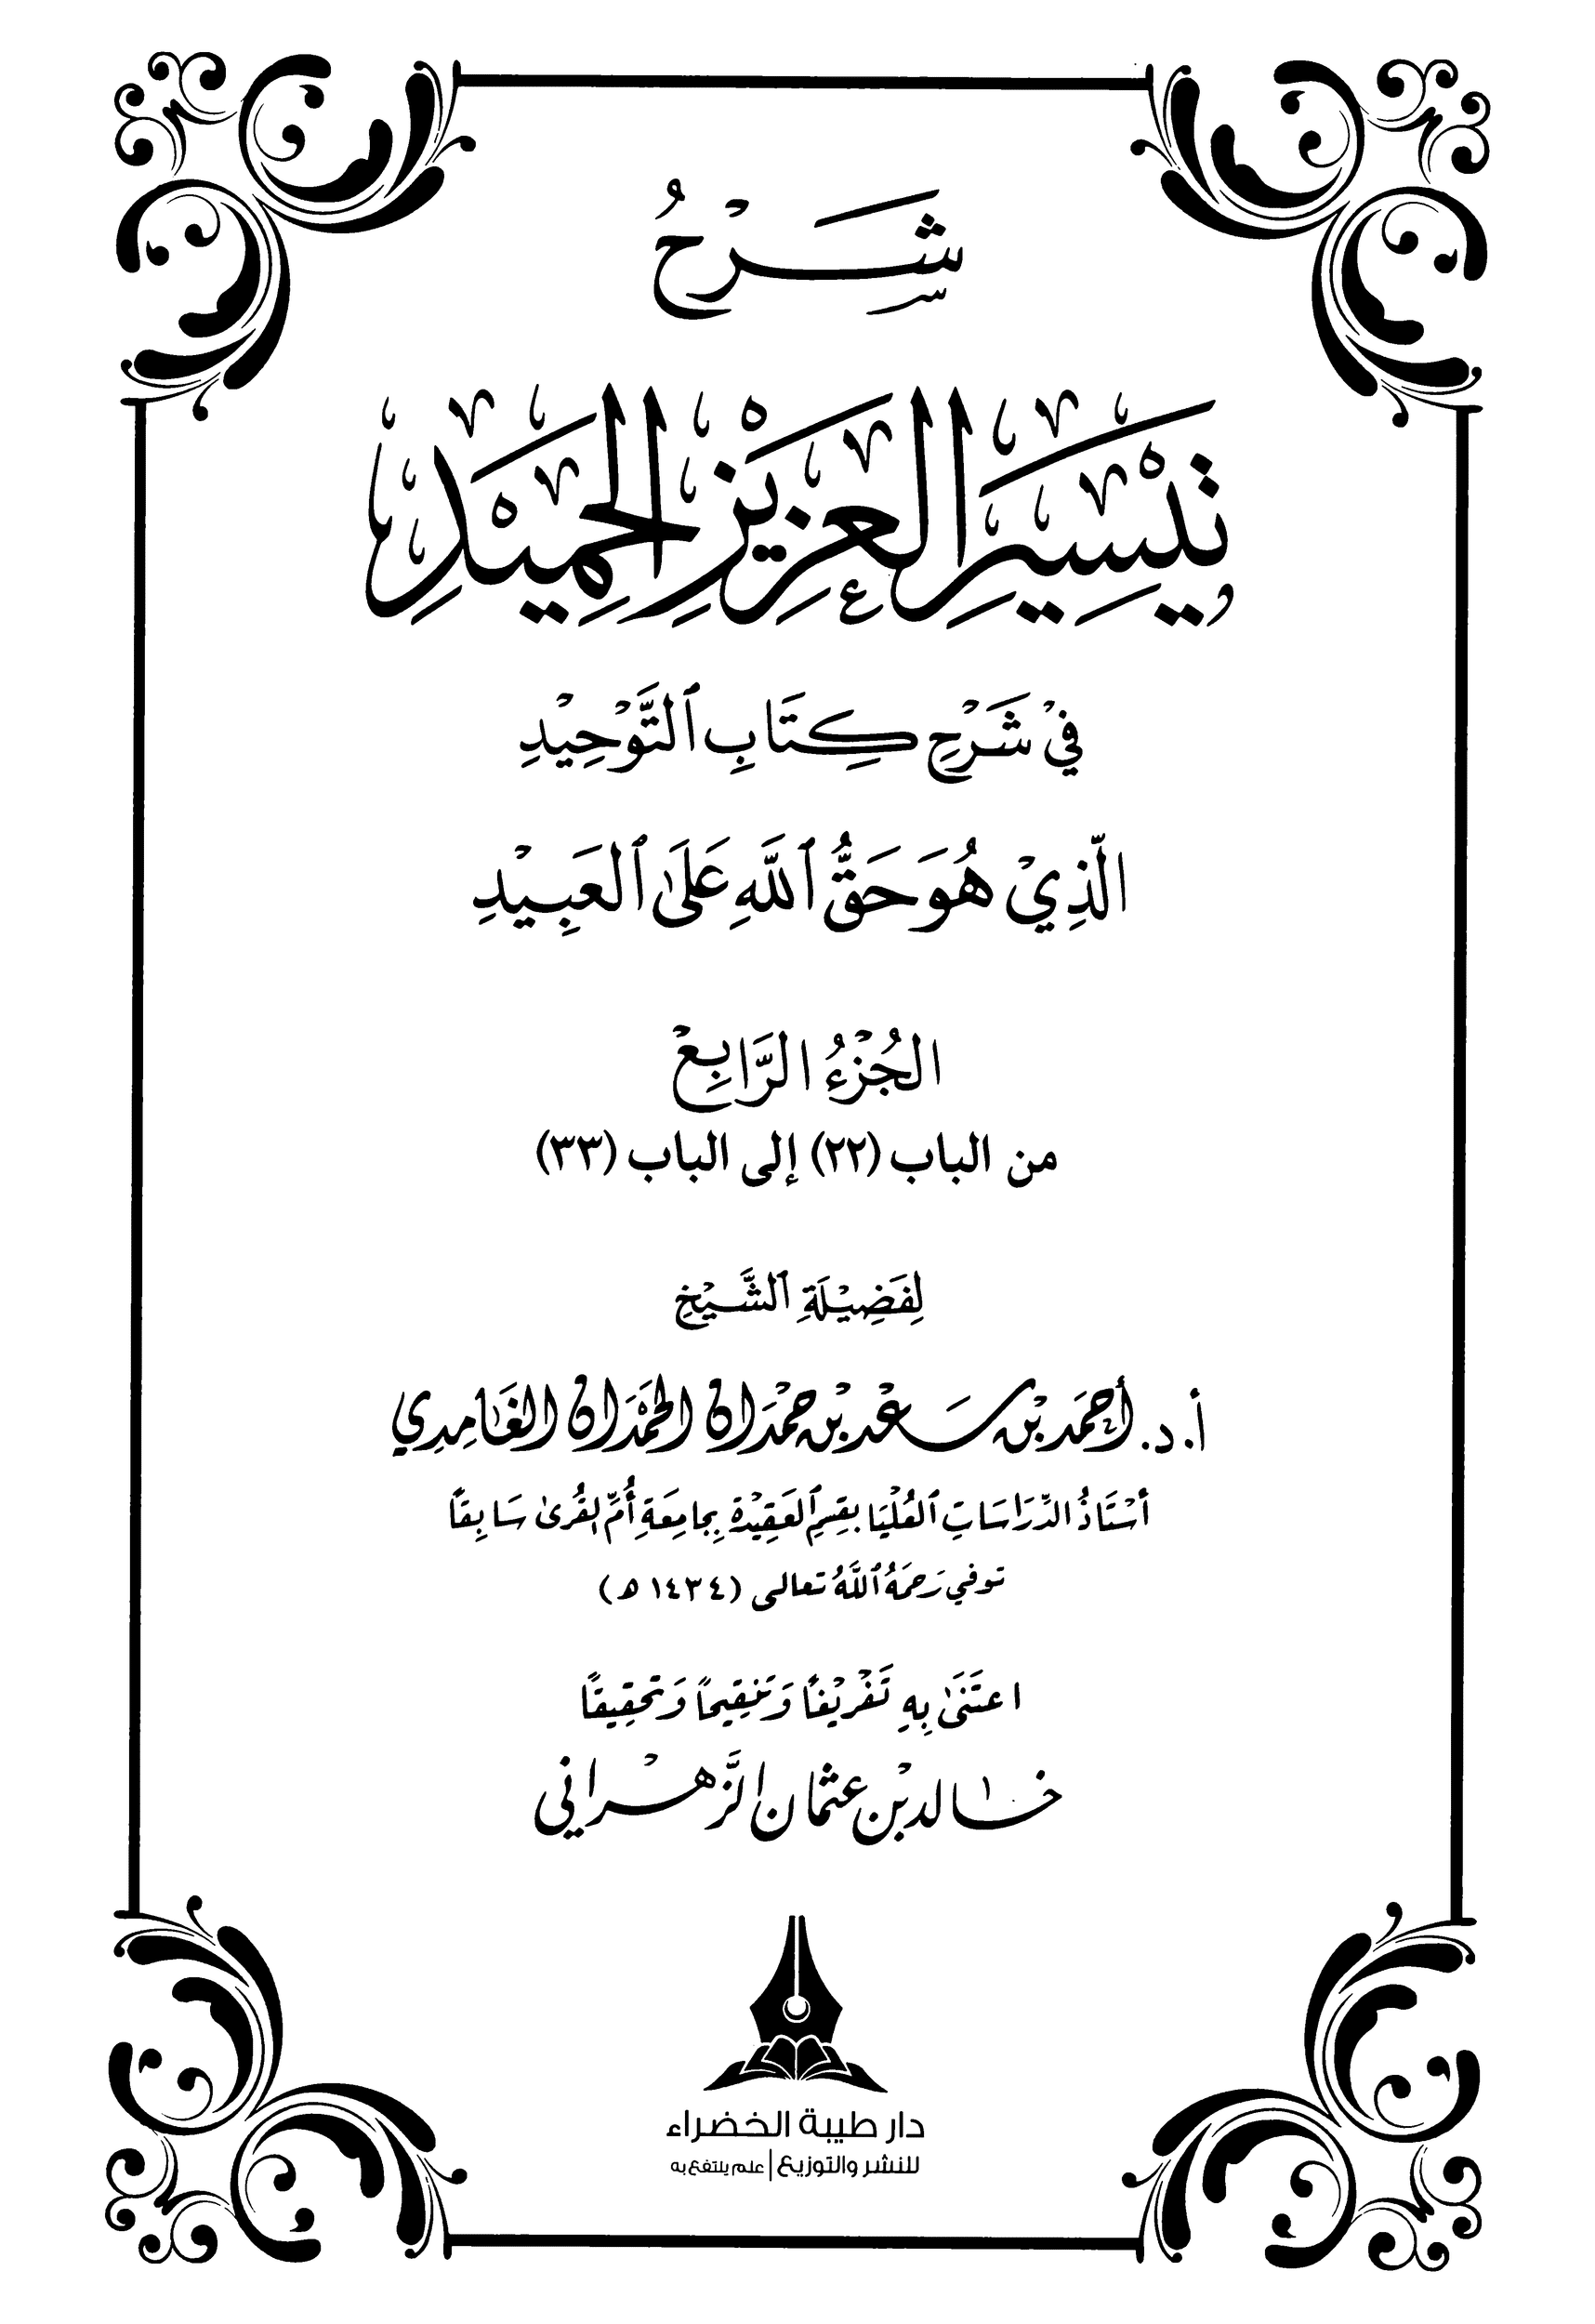 شَرْحُ
تَيْسِيْرِ العَزِيْزِ الحَمِيْدِ
فِيْ شَرْحِ كِتَابِ ٱلتَّوْحِيْدِ
الَّذِيْ هُوَ حَقُّ ٱللَّهِ عَلَىٰ ٱلعَبِيْدِ
الجُزْءُ الرَّابِعْ
من الباب (٢٢) إلى الباب (٣٣)
لِفَضِيْلَةِ ٱلشَّيْخِ
أ. د. أَحمَد بْن سَعْد بْن حمْدَان الحَمْدَان الغَامِدِي
أسْتَاذُ الدِّرَاسَاتِ ٱلعُلْيَا بِقِسْمِ ٱلعَقِيْدَةِ بِجَامِعَةِ أُمِّ القُرىٰ سَابِقاً
توفي رَحمَهُ ٱللَّهُ تعالى (١٤٣٤ هـ)
اعتَنَىٰ بِهِ تَفْرِيْغاً وَتَنقِيحاً وَتحقِيقًا
خَالد بْن عثمان الزَّهْراني
دار طيبة الخضراء
للنشر والتوزيع | علم ينتفع به